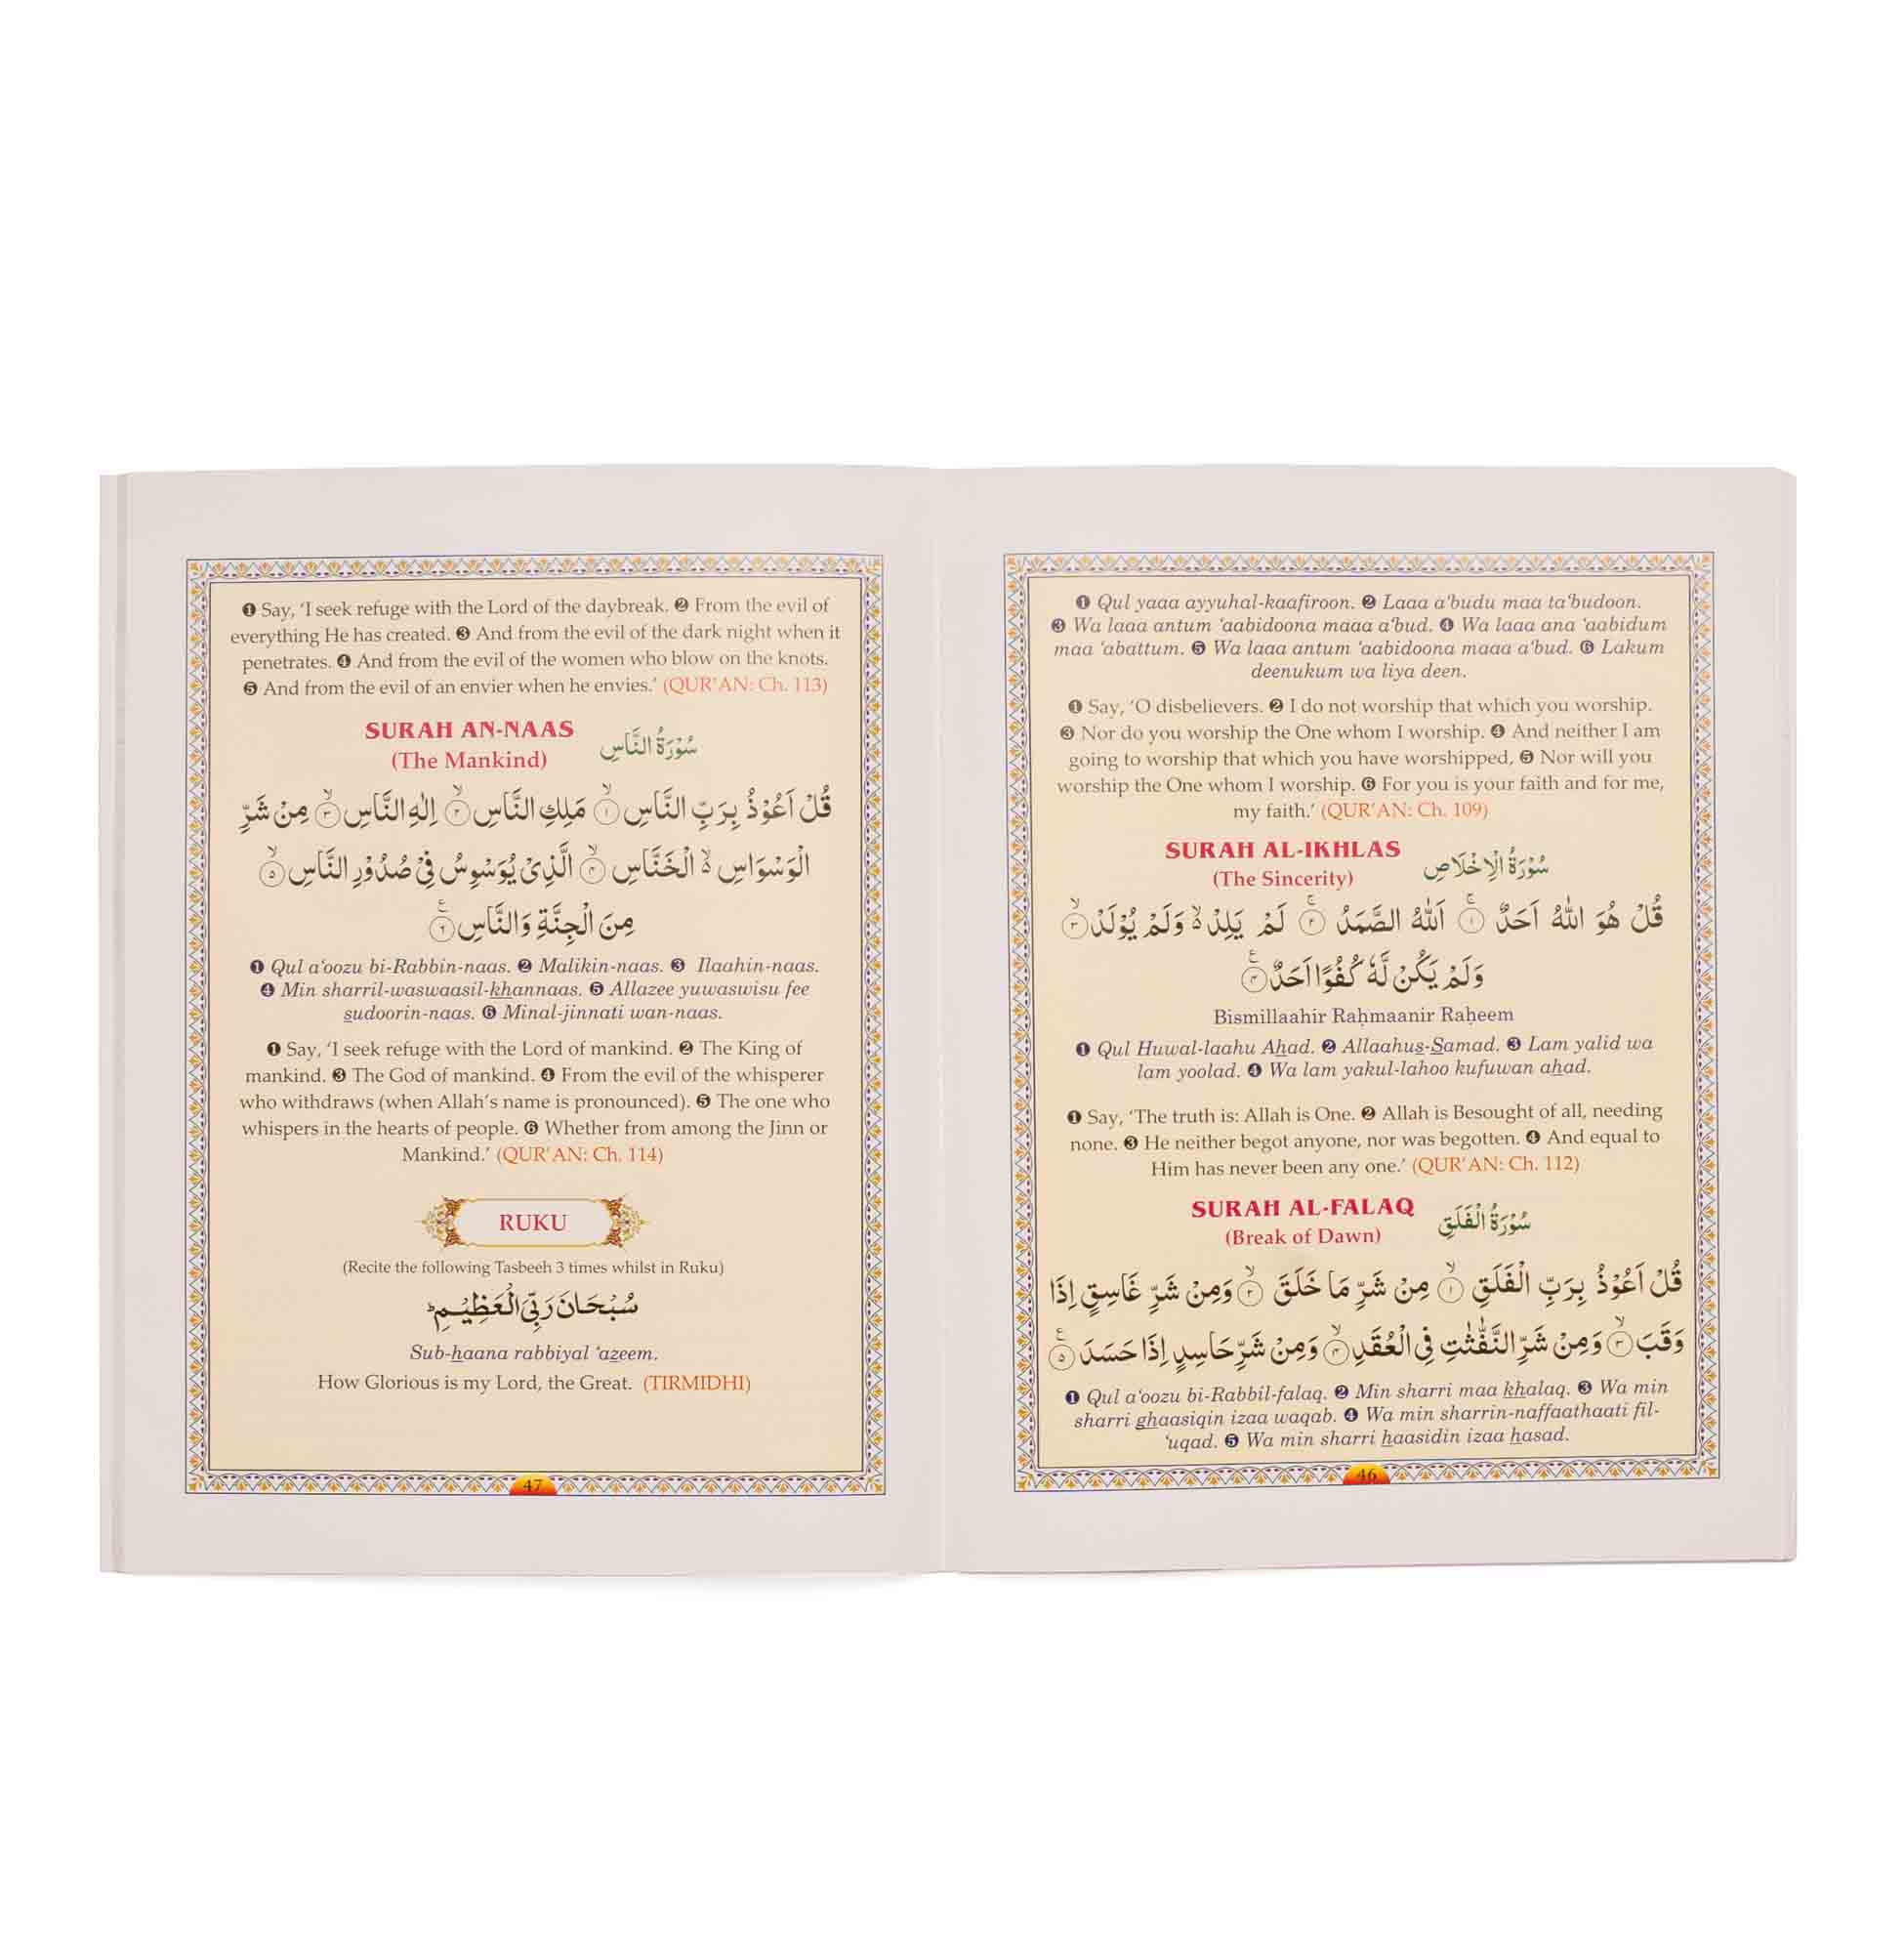 ❶ Qul yaaa ayyuhal-kaafiroon. ❷ Laaa a‘budu maa ta‘budoon.
❸ Wa laaa antum ‘aabidoona maaa a‘bud. ❹ Wa laaa ana ‘aabidum
maa ‘abattum. ❺ Wa laaa antum ‘aabidoona maaa a‘bud. ❻ Lakum
deenukum wa liya deen.
❶ Say, ‘O disbelievers. ❷ I do not worship that which you worship.
❸ Nor do you worship the One whom I worship. ❹ And neither I am
going to worship that which you have worshipped, ❺ Nor will you
worship the One whom I worship. ❻ For you is your faith and for me,
my faith.’ (QUR’AN: Ch. 109)
SURAH AL-IKHLAS
(The Sincerity)
سُوْرَةُ الْاِخْلَاصِ
قُلْ هُوَ اللّٰهُ اَحَدٌ ۚ﴿۱﴾ اَللّٰهُ الصَّمَدُ ۚ﴿۲﴾ لَمْ يَلِدْ ۙ۬ وَلَمْ يُوْلَدْ ۙ﴿۳﴾
وَلَمْ يَكُنْ لَّهٗ كُفُوًا اَحَدٌ ﴿۴﴾
Bismillaahir Raḥmaanir Raḥeem
❶ Qul Huwal-laahu Ahad. ❷ Allaahus-Samad. ❸ Lam yalid wa
lam yoolad. ❹ Wa lam yakul-lahoo kufuwan ahad.
❶ Say, ‘The truth is: Allah is One. ❷ Allah is Besought of all, needing
none. ❸ He neither begot anyone, nor was begotten. ❹ And equal to
Him has never been any one.’ (QUR’AN: Ch. 112)
SURAH AL-FALAQ
(Break of Dawn)
سُوْرَةُ الْفَلَقِ
قُلْ اَعُوْذُ بِرَبِّ الْفَلَقِ ۙ﴿۱﴾ مِنْ شَرِّ مَا خَلَقَ ۙ﴿۲﴾ وَمِنْ شَرِّ غَاسِقٍ اِذَا
وَقَبَ ۙ﴿۳﴾ وَمِنْ شَرِّ النَّفّٰثٰتِ فِي الْعُقَدِ ۙ﴿۴﴾ وَمِنْ شَرِّ حَاسِدٍ اِذَا حَسَدَ ﴿۵﴾
❶ Qul a‘oozu bi-Rabbil-falaq. ❷ Min sharri maa khalaq. ❸ Wa min
sharri ghaasiqin izaa waqab. ❹ Wa min sharrin-naffaathaati fil-
‘uqad. ❺ Wa min sharri haasidin izaa hasad.
46
❶ Say, ‘I seek refuge with the Lord of the daybreak. ❷ From the evil of
everything He has created. ❸ And from the evil of the dark night when it
penetrates. ❹ And from the evil of the women who blow on the knots.
❺ And from the evil of an envier when he envies.’ (QUR’AN: Ch. 113)
SURAH AN-NAAS
(The Mankind)
سُوْرَةُ النَّاسِ
قُلْ اَعُوْذُ بِرَبِّ النَّاسِ ۙ﴿۱﴾ مَلِكِ النَّاسِ ۙ﴿۲﴾ اِلٰهِ النَّاسِ ۙ﴿۳﴾ مِنْ شَرِّ
الْوَسْوَاسِ ۙ۬ الْخَنَّاسِ ۙ﴿۴﴾ الَّذِيْ يُوَسْوِسُ فِيْ صُدُوْرِ النَّاسِ ۙ﴿۵﴾
مِنَ الْجِنَّةِ وَالنَّاسِ ﴿۶﴾
❶ Qul a‘oozu bi-Rabbin-naas. ❷ Malikin-naas. ❸ Ilaahin-naas.
❹ Min sharril-waswaasil-khannaas. ❺ Allazee yuwaswisu fee
sudoorin-naas. ❻ Minal-jinnati wan-naas.
❶ Say, ‘I seek refuge with the Lord of mankind. ❷ The King of
mankind. ❸ The God of mankind. ❹ From the evil of the whisperer
who withdraws (when Allah’s name is pronounced). ❺ The one who
whispers in the hearts of people. ❻ Whether from among the Jinn or
Mankind.’ (QUR’AN: Ch. 114)
RUKU
(Recite the following Tasbeeh 3 times whilst in Ruku)
سُبْحَانَ رَبِّيَ الْعَظِيْمِ ؕ
Sub-haana rabbiyal ‘azeem.
How Glorious is my Lord, the Great. (TIRMIDHI)
47